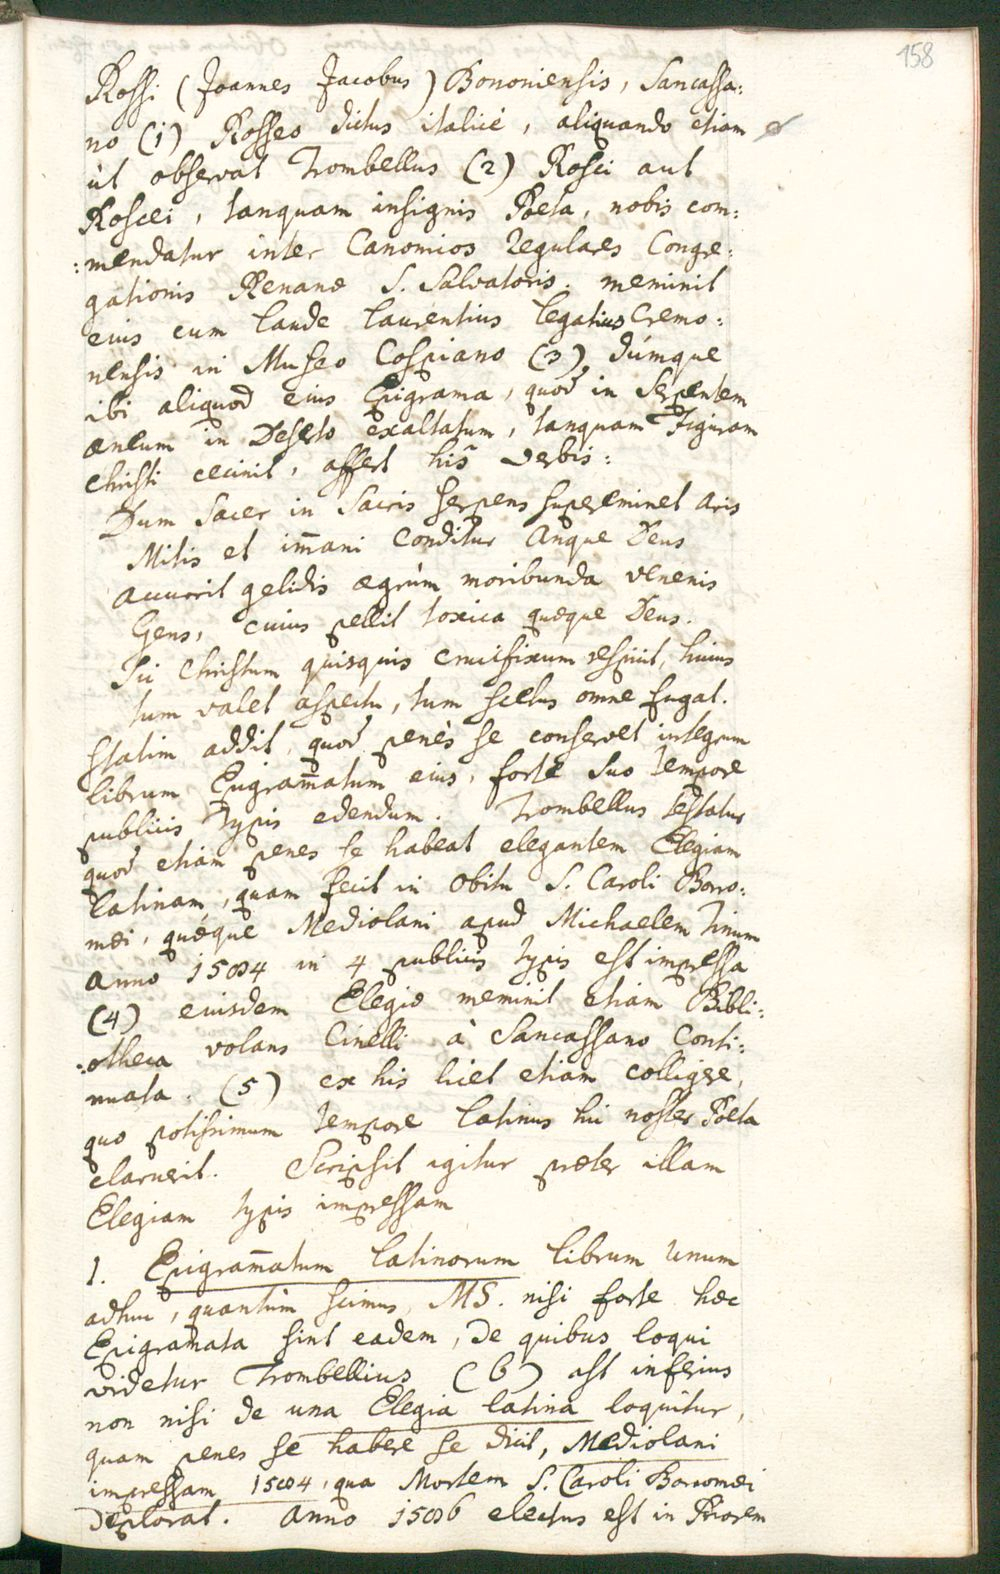 158
Rossi (Joannes Jacobus) Bononiensis, Sancassa:
no (1) Rosseo dictus italicè, aliquando etiam
ut observat Trombellus (2) Rosci aut
Roscei, tanquam insignis Poeta, nobis com:
:mendatur inter Canonicos Regulares Congre:
gationis Renanæ S. Salvatoris. meminit
eius cum laude Laurentius Legatius Cremo:
nensis in Museo Cospiano (3) dúmque
ibi aliquod eius Epigrama, quod in Serpentem
æneum in Deserto exaltatum, tanquam Figuram
Christi cecinit, affert his verbis:
Dum Sacer in Sacris Serpens supereminet aris
Mitis et im̄ani conditur Angue Deus
Accurrit gelidis ægrùm moribunda venenis
Gens, cuius pellit toxica quæque Deus.
Sic Christum quisquis crucifixum respicit, huius
tum valet aspectu, tum scelus omne fugat.
Statim addit, quod penès se conservet integrum
librum Epigram̄atum eius, forte suo tempore
publicis typis edendum. Trombellus testatur
quod etiam penes se habeat elegantem Elegiam
latinam, quam fecit in obitu S. Caroli Borro:
mæi, quæque Mediolani apud Michaelem Tinum
anno 1584 in 4 publicis typis est impressa
(4) eiusdem Elegiæ meminit etiam Bibli:
:otheca volans Cinelli à Sancassano Conti:
nuata. (5) ex his licet etiam colligere,
quo potissimum tempore latinus hic noster Poeta
claruerit. Scripsit igitur præter illam
Elegiam typis impressam
1. Epigram̄atum latinorum librum unum
adhuc, quantùm scimus, MS. nisi forte hæc
Epigramata sint eadem, de quibus loqui
videtur Trombellius (6) ast inferius
non nisi de una Elegia latina loquitur,
quam penes se habere se dicit, Mediolani
impressam 1584, qua Mortem S. Caroli Borromæi
deplorat. Anno 1586 electus est in Priorem